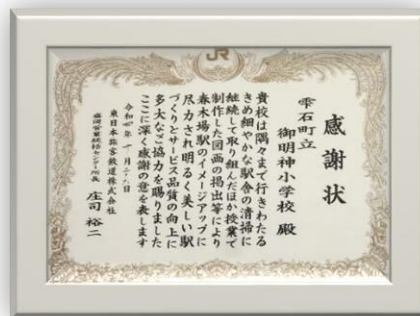 JR
感謝状
雫石町立
御明神小学校 殿
貴校は隅々まで行きわたる
きめ細やかな駅舎の清掃に
継続して取り組んだほか授業で
制作した図画の掲出等により
春木場駅のイメージアップに
尽力され明るく美しい駅
づくりとサービス品質の向上に
多大なご協力を賜りました
ここに深く感謝の意を表します
東日本旅客鉄道株式会社
庄司 裕二